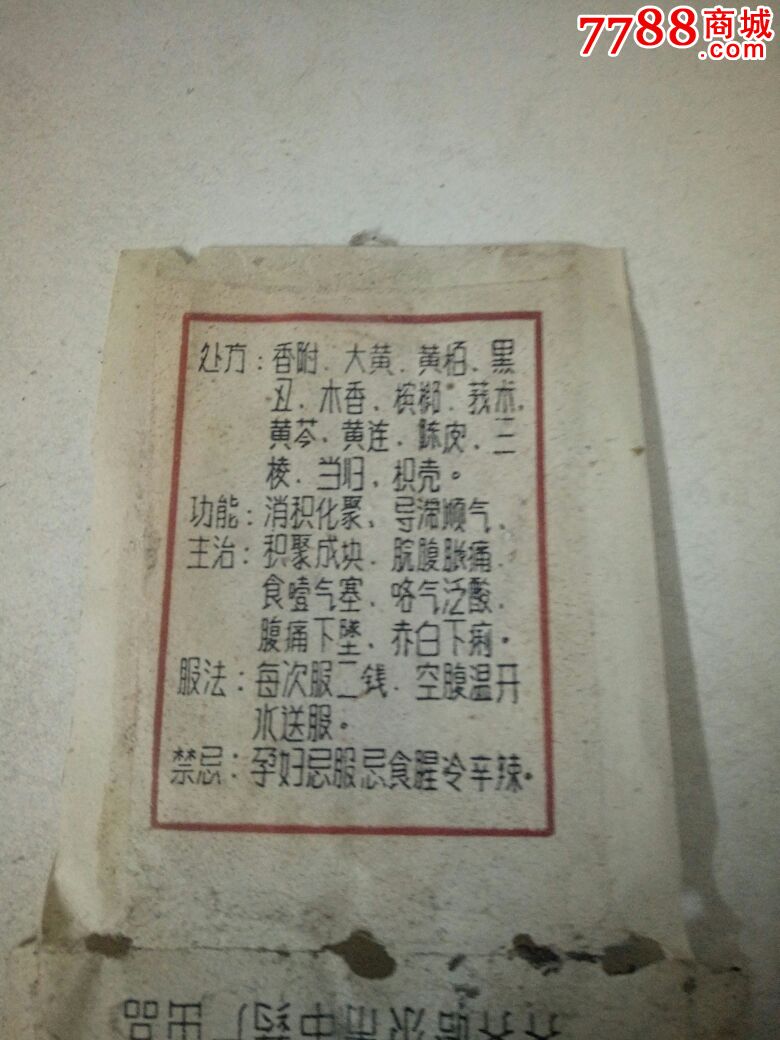 7788商城
.com
处方:香附、大黄、黄柏、黑
丑、木香、槟榔、莪术、
黄芩、黄连、陈皮、三
棱、当归、枳壳。
功能:消积化聚、导滞顺气、
主治:积聚成块、脘腹胀痛、
食噎气塞、咯气泛酸、
腹痛下墜、赤白下痢。
服法:每次服二钱、空腹温开
水送服。
禁忌:孕妇忌服忌食腥冷辛辣。
齐齐哈尔市中药厂出品